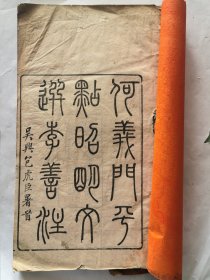 何義門平
點昭明文
選李善注
吳興包虎臣署首